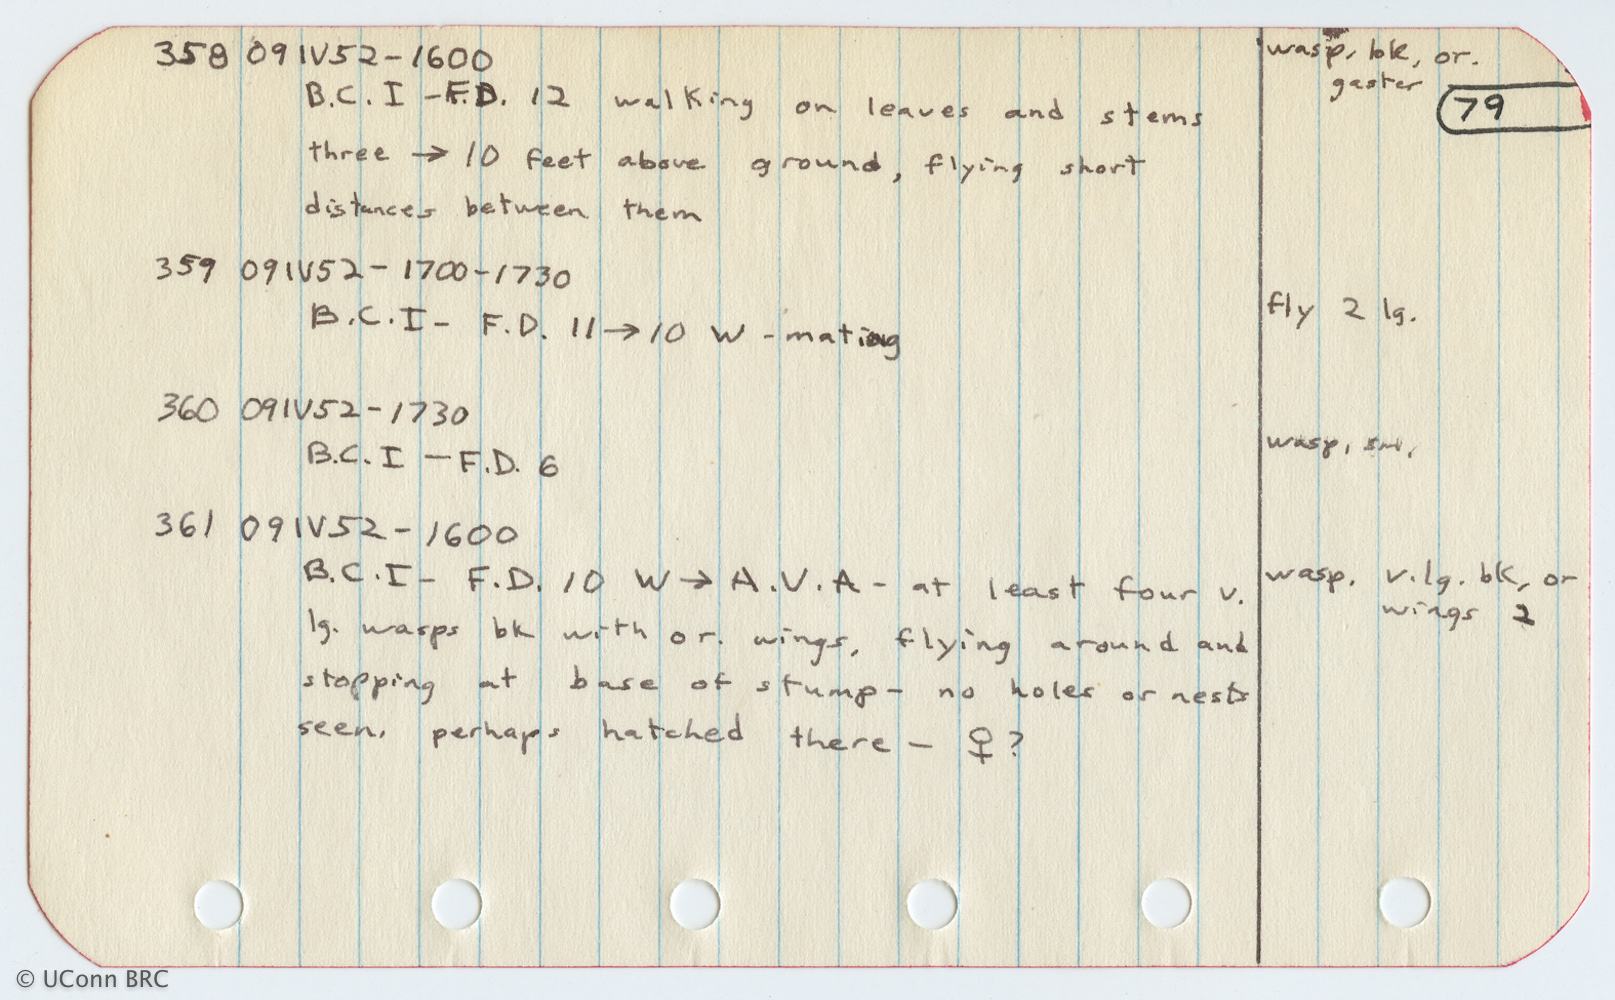 358 09IV52-1600
wasp, bk, or.
gaster
79
B.C.I -F.D. 12 walking on leaves and stems
three → 10 feet above ground, flying short
distances between them
359 09IV52-1700-1730
fly 2 lg.
B.C.I- F.D. 11→10 W -mating
360 09IV52-1730
wasp, sm.
B.C.I -F.D. 6
361 09IV52-1600
B.C.I- F.D. 10 W→A.V.A- at least four v.
wasp. v.lg. bk, or
wings 2
lg. wasps bk with or. wings, flying around and
stopping at base of stump- no holes or nests
seen. perhaps hatched there - ♀?
© UConn BRC